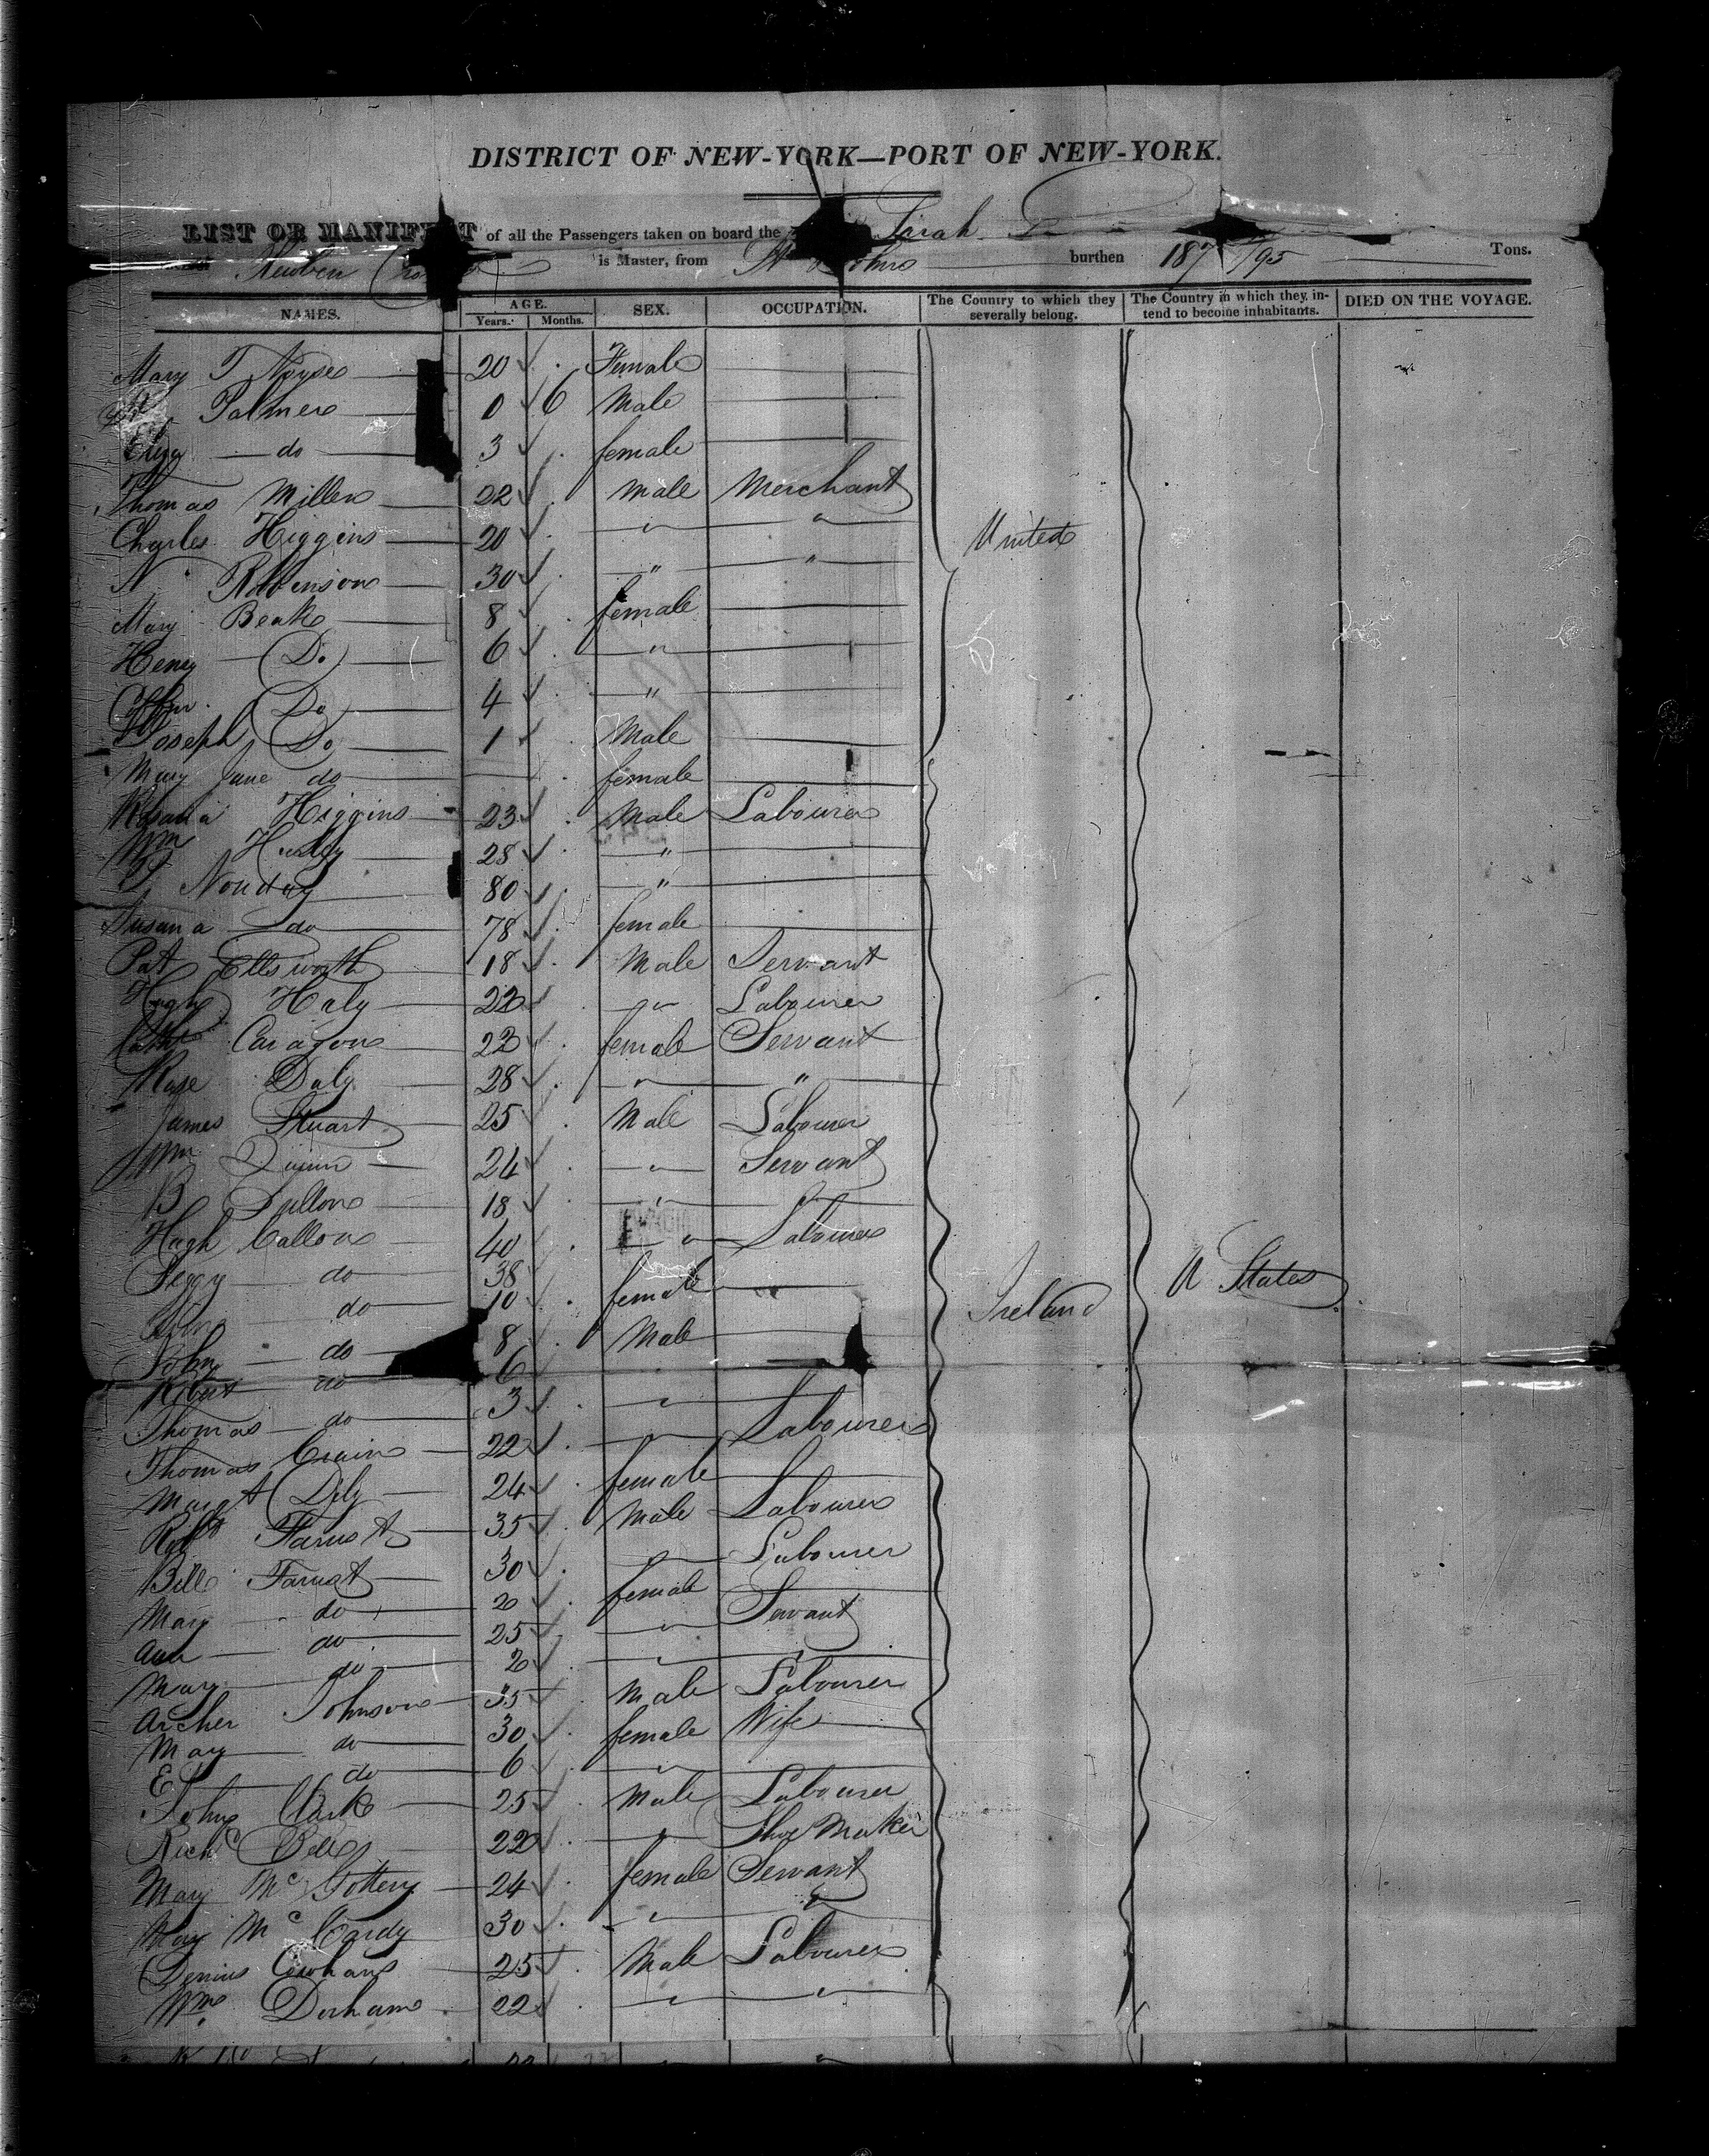 DISTRICT OF NEW-YORK—PORT OF NEW-YORK.
LIST OR MANIFEST of all the Passengers taken on board the Sarah
Reuben is Master, from St Johns burthen 187 /95 Tons.
NAMES. AGE. Years. Months. SEX. OCCUPATION. The Country to which they severally belong. The Country in which they intend to become inhabitants. DIED ON THE VOYAGE.
Mary T Noyse 20 Female
Palmer 0 6 Male
Eliza do 3 female
Thomas Miller 22 male Merchant
Charles Higgins 20 " "
United
N Robenson 30 " "
Mary Beake 8 female
Heney Do 6 "
Do 4 "
Joseph Do 1 Male
Mary Jane do female
Higgins 23 Male Labourer
Wm Hurley 28 "
80 "
Susana do 78 female
Pat Ellsworth 18 Male Servant
Hugh Haly 22 " Labourer
22 female Servant
Rose Daly 28 " "
James Stuart 25 Male Labourer
Wm Quinn 24 " Servant
B 18 "
Hugh Callon 40 " Labourer
Peggy do 38 female
do 10
Ireland U States
John do 8 Male
Robert do 6
Thomas do 3 "
Thomas Crain 22 " Labourer
Margt Dily 24 female
Robt 35 Male Labourer
Bill 30 " Labourer
Mary do 20 female
Ann do 25 " Servant
Mary do 2 "
Archer Johnson 35 Male Labourer
Mary do 30 female Wife
E do 6 "
John Clark 25 Male Labourer
Richd Bell 22 " Shoe Maker
Mary Mc 24 female Servant
Mary Mc Cardy 30 " "
Denius 25 Male Labourer
Wm Durham 22 " "